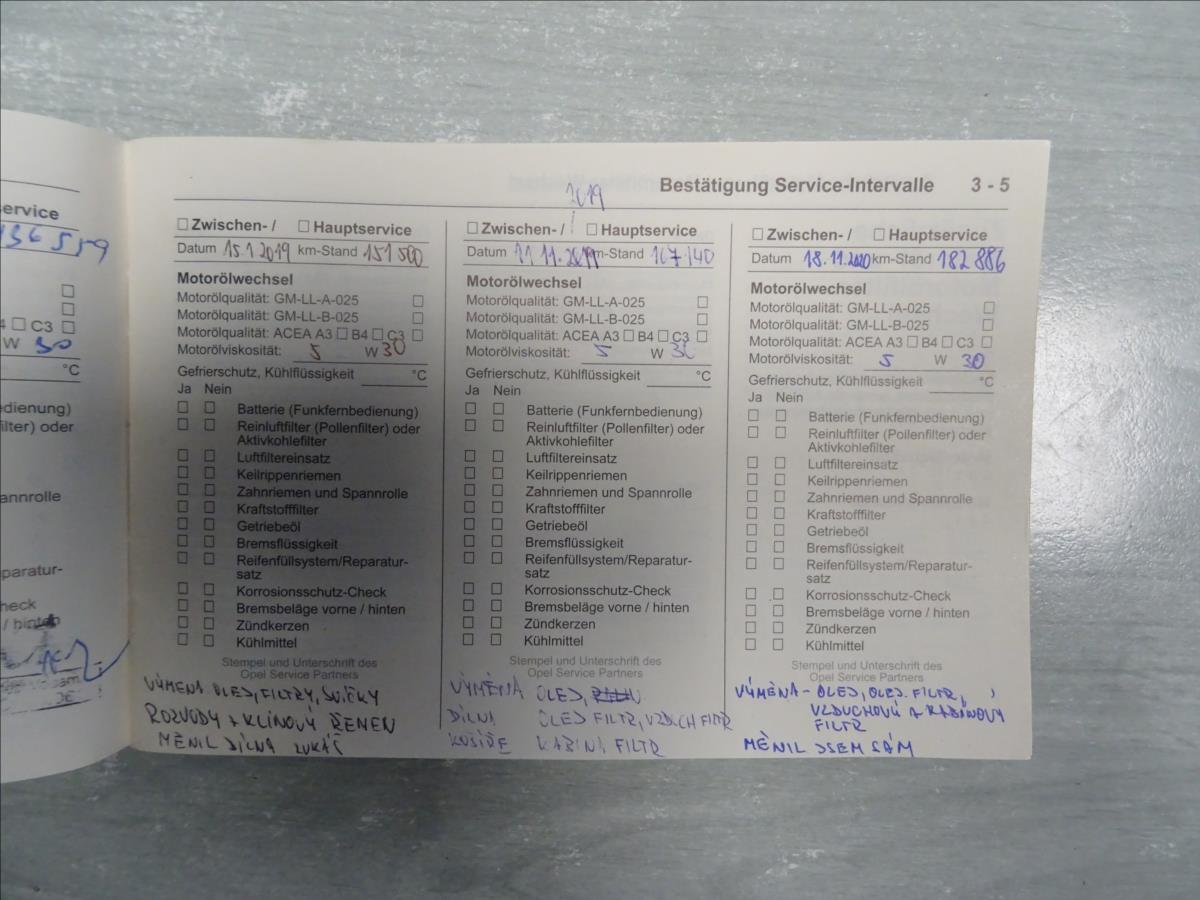 ervice
136 559
C3
W 30
°C
edienung)
ilter) oder
annrolle
paratur-
heck
/ hinten
Bestätigung Service-Intervalle 3 - 5
Zwischen- / Hauptservice
Datum 15.1 2019 km-Stand 151 500
Motorölwechsel
Motorölqualität: GM-LL-A-025
Motorölqualität: GM-LL-B-025
Motorölqualität: ACEA A3 B4 C3
Motorölviskosität: 5 W 30
Gefrierschutz, Kühlflüssigkeit °C
Ja Nein
Batterie (Funkfernbedienung)
Reinluftfilter (Pollenfilter) oder
Aktivkohlefilter
Luftfiltereinsatz
Keilrippenriemen
Zahnriemen und Spannrolle
Kraftstofffilter
Getriebeöl
Bremsflüssigkeit
Reifenfüllsystem/Reparatur-
satz
Korrosionsschutz-Check
Bremsbeläge vorne / hinten
Zündkerzen
Kühlmittel
Stempel und Unterschrift des
Opel Service Partners
VÝMĚNA OLEJ, FILTRY, SVÍČKY
ROZVODY + KLÍNOVÝ ŘEMEN
MĚNIL DÍLNA LUKÁŠ
2019
Zwischen- / Hauptservice
Datum 11 11.2019 km-Stand 167 140
Motorölwechsel
Motorölqualität: GM-LL-A-025
Motorölqualität: GM-LL-B-025
Motorölqualität: ACEA A3 B4 C3
Motorölviskosität: 5 W 30
Gefrierschutz, Kühlflüssigkeit °C
Ja Nein
Batterie (Funkfernbedienung)
Reinluftfilter (Pollenfilter) oder
Aktivkohlefilter
Luftfiltereinsatz
Keilrippenriemen
Zahnriemen und Spannrolle
Kraftstofffilter
Getriebeöl
Bremsflüssigkeit
Reifenfüllsystem/Reparatur-
satz
Korrosionsschutz-Check
Bremsbeläge vorne / hinten
Zündkerzen
Kühlmittel
Stempel und Unterschrift des
Opel Service Partners
VÝMĚNA OLEJ,
DÍLNA OLEJ FILTR, VZDUCH FILTR
KOŠÍŘE KABINI FILTR
Zwischen- / Hauptservice
Datum 18.11.2020 km-Stand 182 886
Motorölwechsel
Motorölqualität: GM-LL-A-025
Motorölqualität: GM-LL-B-025
Motorölqualität: ACEA A3 B4 C3
Motorölviskosität: 5 W 30
Gefrierschutz, Kühlflüssigkeit °C
Ja Nein
Batterie (Funkfernbedienung)
Reinluftfilter (Pollenfilter) oder
Aktivkohlefilter
Luftfiltereinsatz
Keilrippenriemen
Zahnriemen und Spannrolle
Kraftstofffilter
Getriebeöl
Bremsflüssigkeit
Reifenfüllsystem/Reparatur-
satz
Korrosionsschutz-Check
Bremsbeläge vorne / hinten
Zündkerzen
Kühlmittel
Stempel und Unterschrift des
Opel Service Partners
VÝMĚNA - OLEJ, OLEJ. FILTR,
VZDUCHOVÝ A KABINOVÝ
FILTR
MĚNIL JSEM SÁM